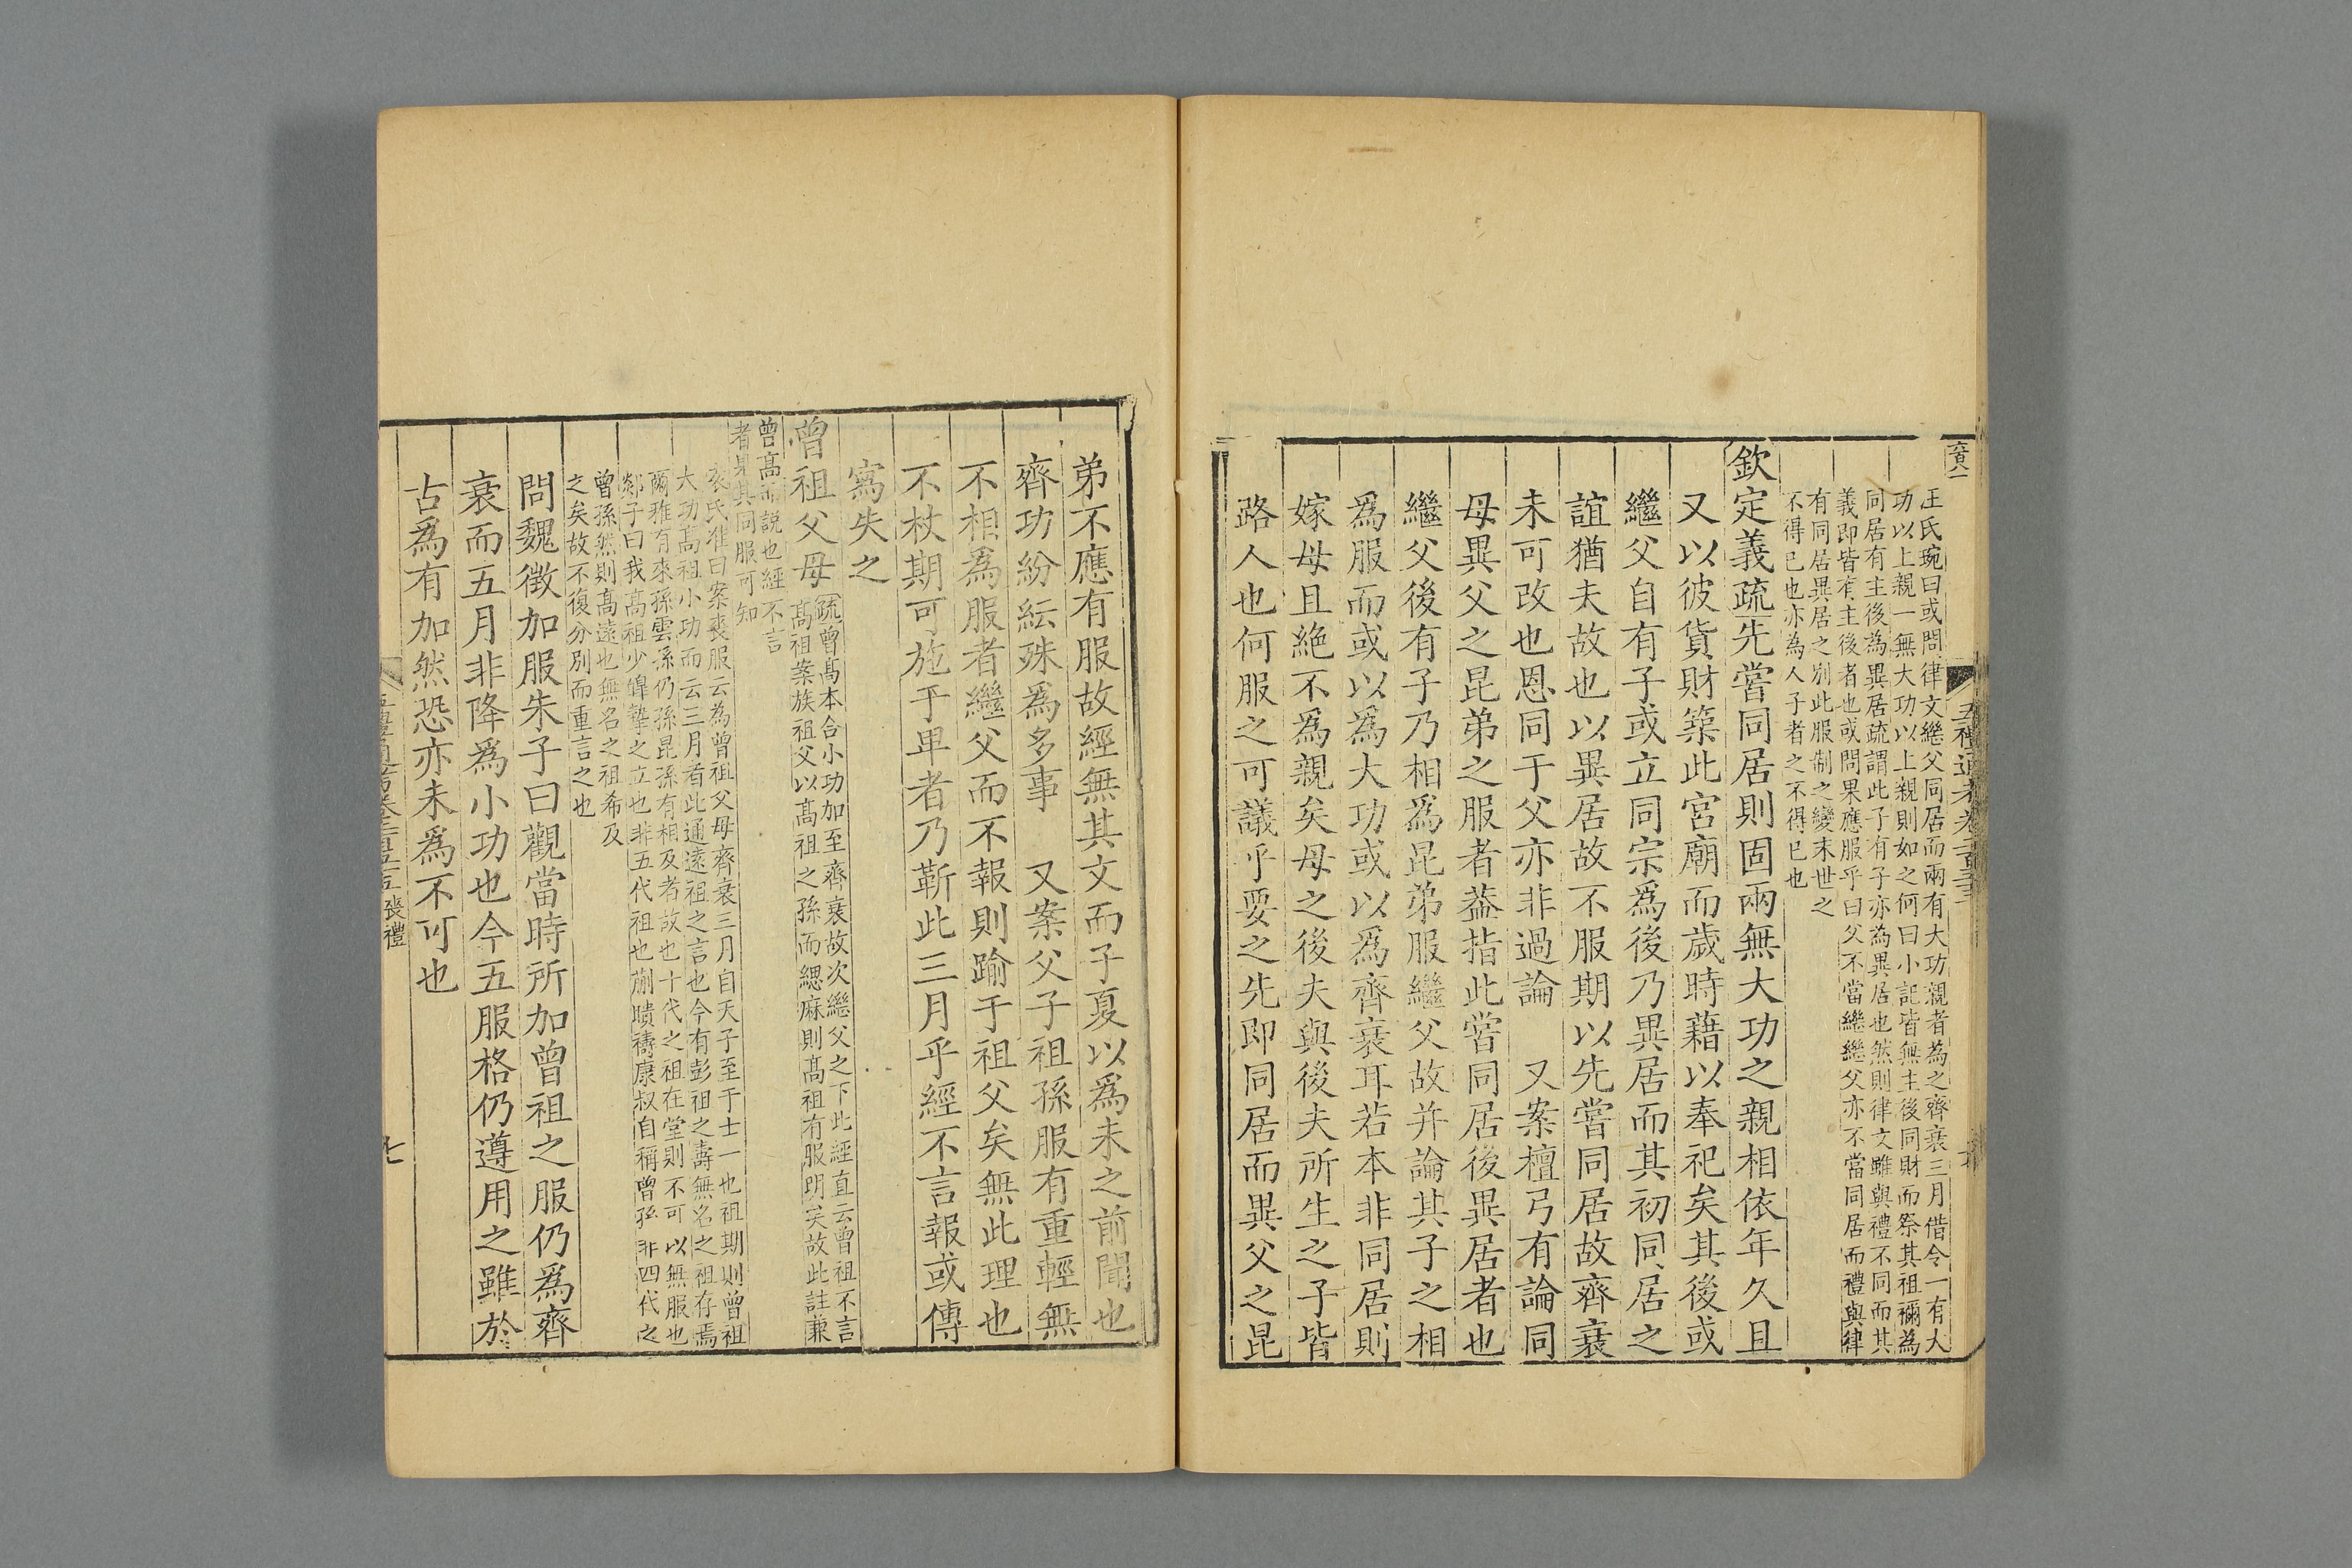 汪氏琬曰或問律文繼父同居而兩有大功親者為之齊衰三月借令一有大
功以上親一無大功以上親則如之何曰小記皆無主後同財而祭其祖禰為
同居有主後為異居疏謂此子有子亦為異居也然則律文雖與禮不同而其
義即皆有主後者也或問果應服乎曰父不當繼繼父亦不當同居而禮與律
有同居異居之別此服制之變末世之
不得已也亦為人子者之不得已也
欽定義疏先嘗同居則固兩無大功之親相依年久且
又以彼貨財築此宮廟而歲時藉以奉祀矣其後或
繼父自有子或立同宗為後乃異居而其初同居之
誼猶夫故也以異居故不服期以先嘗同居故齊衰
未可改也恩同于父亦非過論 又案檀弓有論同
母異父之昆弟之服者葢指此嘗同居後異居者也
繼父後有子乃相爲昆弟服繼父故并論其子之相
爲服而或以爲大功或以爲齊衰耳若本非同居則
嫁母且絶不爲親矣母之後夫與後夫所生之子皆
路人也何服之可議乎要之先即同居而異父之昆
弟不應有服故經無其文而子夏以爲未之前聞也
齊功紛紜殊爲多事 又案父子祖孫服有重輕無
不相爲服者繼父而不報則踰于祖父矣無此理也
不杖期可施于卑者乃靳此三月乎經不言報或傳
寫失之
曾祖父母疏曾高本合小功加至齊衰故次繼父之下此經直云曾祖不言
高祖案族祖父以高祖之孫而緦麻則高祖有服明矣故此註兼
曾高而説也經不言
者見其同服可知
袁氏準曰案喪服云為曾祖父母齊衰三月自天子至于士一也祖期則曾祖
大功高祖小功而云三月者此通遠祖之言也今有彭祖之壽無名之祖存焉
爾雅有來孫雲孫仍孫昆孫有相及者故也十代之祖在堂則不可以無服也
郯子曰我高祖少皞摯之立也非五代祖也蒯聵禱康叔自稱曾孫非四代之
曾孫然則高遠也無名之祖希及
之矣故不復分別而重言之也
問魏徵加服朱子曰觀當時所加曾祖之服仍爲齊
衰而五月非降爲小功也今五服格仍遵用之雖於
古爲有加然恐亦未爲不可也
五禮通考卷二百五十五喪禮
七